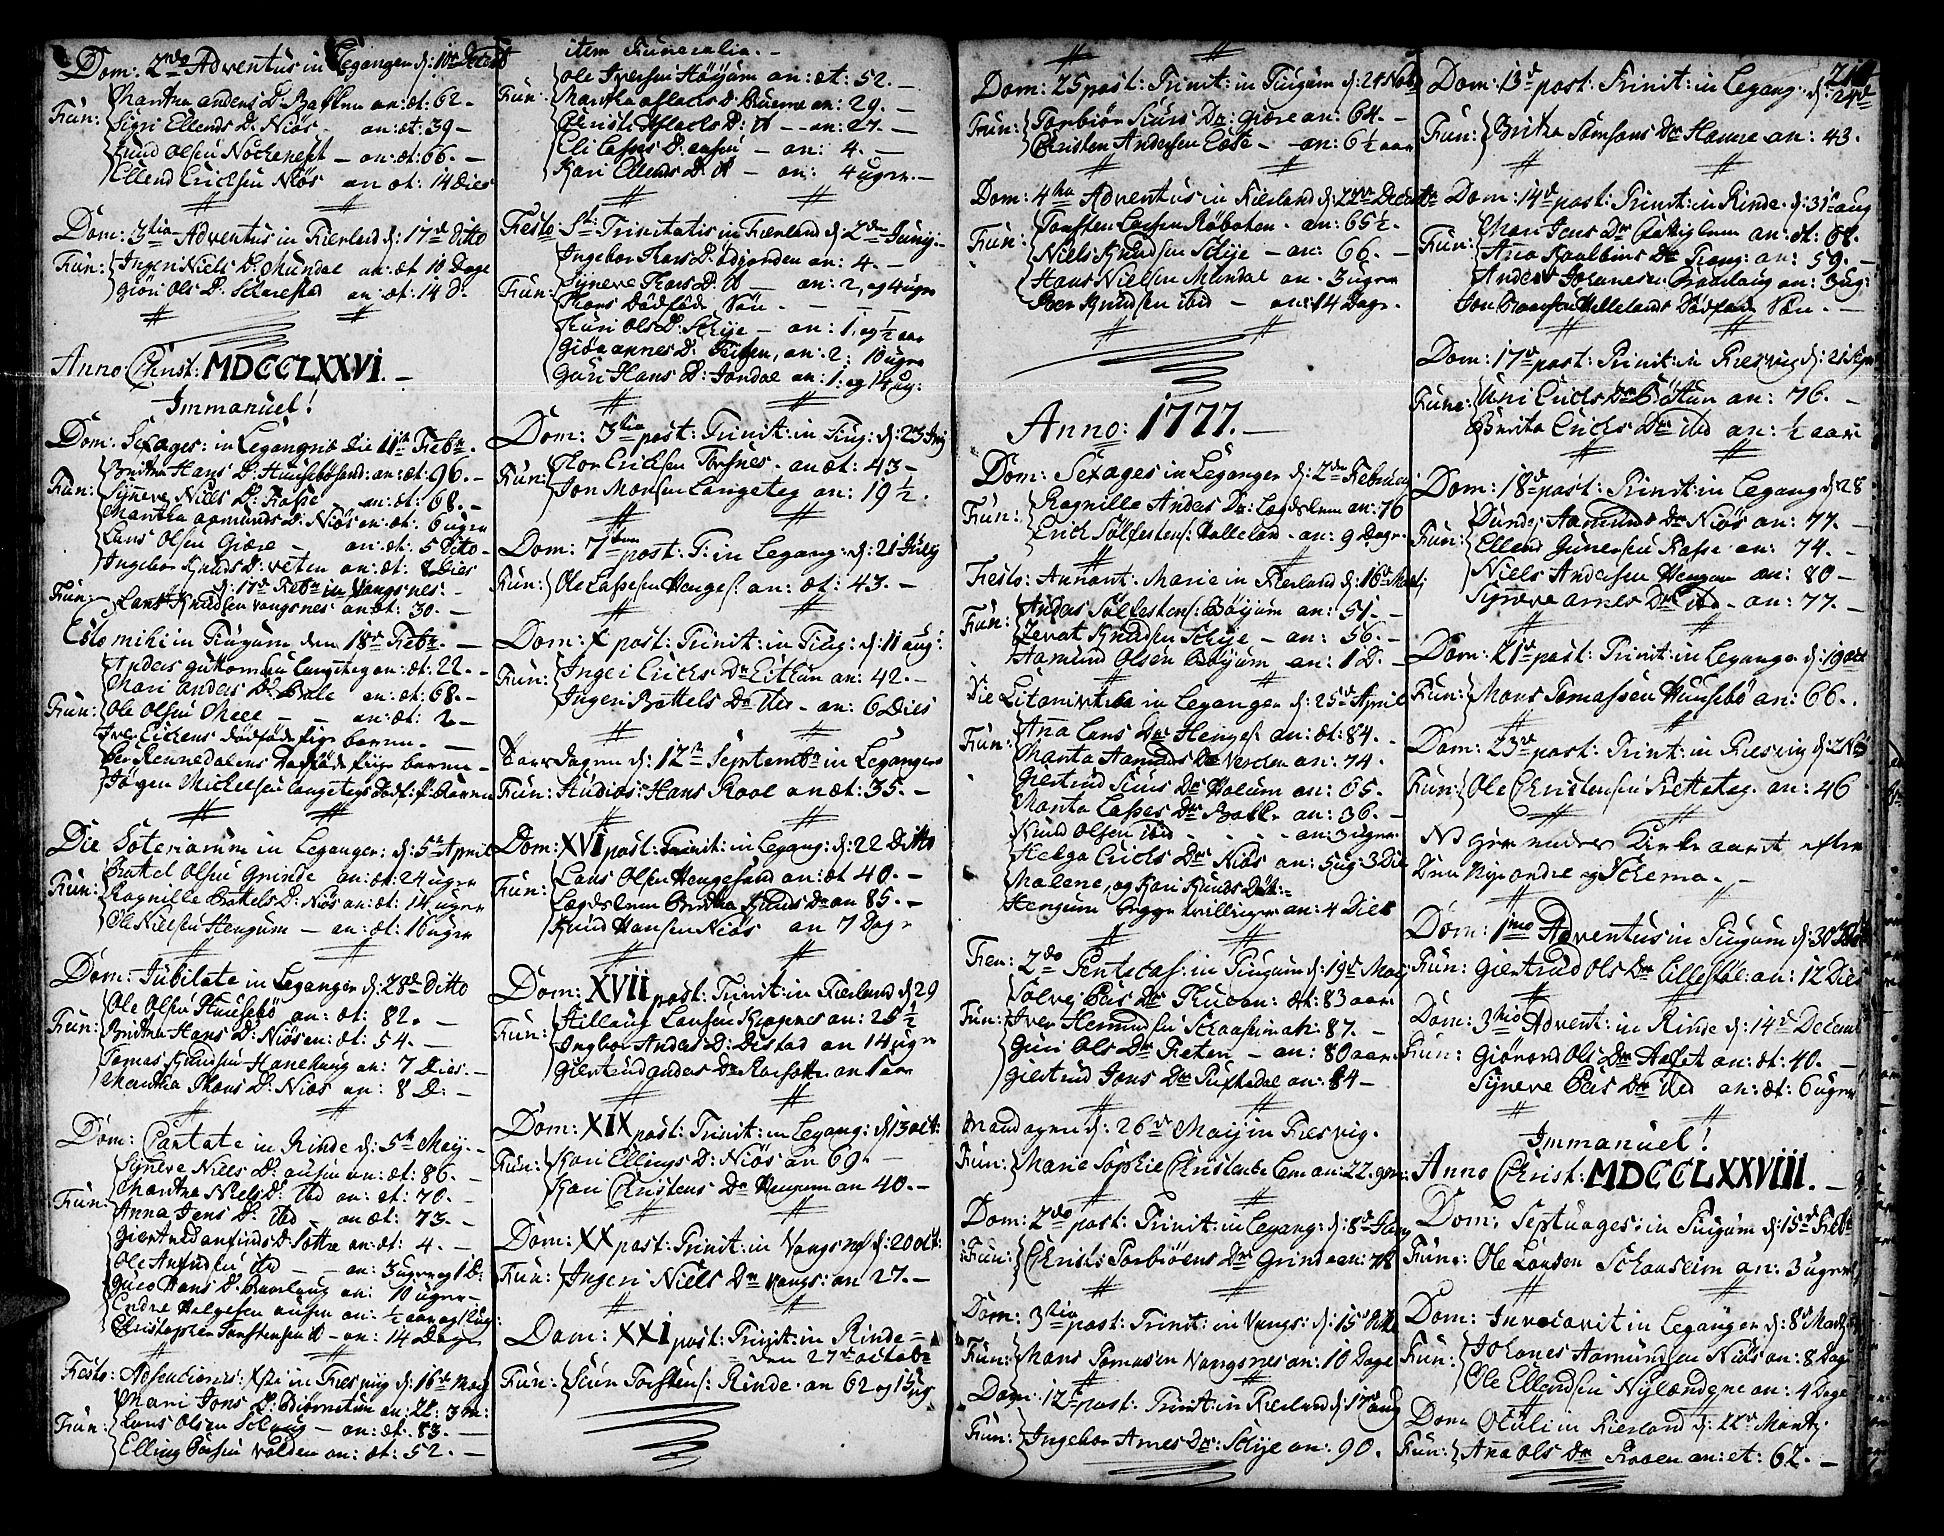 Dom: 2da Adventus in Leganger d: 10de Decbr
Fun: Martha anders D: Bakken an: æt: 62. –
Sigri Ellends D: Niös – an: æt: 39 –
Knud olsen Nockeneft – an: æt: 66. –
Ellend Ericksen Niös an æt: 14 Dies
Dom: 3tia Adventus in Fierland d: 17de Ditto
Fun: Ingeri Niels D: Mundal an: æt 10 Dage
Giöri Ols D: an: æt: 14 D.
Anno Christ: MDCCLXXVI. –
Immanuel!
Dom: Sexages: in Leganger die 11te Febr.
Fun: Britha Hans D: Huusebösand: an: æt: 96. –
Synneve Niels D: an: æt: 68. –
Martha aamunds D: Niös an: æt: 6 uger
Lars Olsen Giære – an: æt: 5 Ditto –
Ingebor Knuds D: veten an: æt: 8 Dies
d: 17de Febr in Vangsnes: –
Fun: Lars Knudsen Vangsnes an: æt: 30. –
Esto mihi in Tiugum den 18de Febr. –
Fun: Anders guttormsen Langeteg an: æt: 22. –
Mari anders D: Bale an: æt: 68. –
Ole Olsen Mell – – an: æt: 2 –
Iver Eickens dödföde Pige barn. –
Per Rennedalens dödföde Pige barn –
Jörgen Mickelsen Langetegs dödf: P: Barn
Die Soteriarum in Leganger: d: 5te April
Fun: Battel Olsen Grinde an: æt: 24 uger
Ragnille Battels D: Niös an: æt: 14 uger
Ole Nielsen Hengum – an: æt: 16 uger
Dom: Jubilate in Leganger d: 28de Ditto
Fun: Ole Olsen Huusebö an: æt: 82. –
Britha Hans D: Niös an: æt: 54. –
Tomas Knudsen Hanehaug an: 7 Dies. –
Martha Hans D: Niös an: 8 D: –
Dom: Cantate in Rinde d: 5te Maij. –
Fun: Synneve Niels D: ausen an: æt: 86. –
Martha Niels D: ibd an: æt: 70. –
Anna Jens D: ibd an æt: 73. –
Giertrud anfinds D: Söttre an: æt: 4. –
Ole Anfindsen ibd – – an: 3 uger og 1 D:
Guro Hans D: Bramhaug an: 10 uger –
Endre Helgesen ausen an: ½ aar og 1 ug
Christopher Torstensen ib – an: 14 Dager
Festo: Adsentionis: Xsti in Fresvig d: 16de Maij
Fun: Mari Jons D: Biörnetun an: 22: 3 m:
Lars Olsen Schaug – an: æt: 83. –
Elling Persen volden an: æt: 52. –
item Funeralia. –
Fun: Ole Iversen Höyum an: æt: 52. –
Martha aslacks D: Cruerne an: 29. –
Christi Aslacks D: ib – – an: 27. –
Eli Lasses D: ausen – an: 4. –
Kari Ellends D: ib – an: 4 uger. –
Festo St: Trinitatis in Færland d: 2den Junij: –
Fun: Ingebor Hans D: ödgorden an: 4. –
Synneve Hans D: ib – an: 2, og 4 uger
Hans Dödföde Sön. – – –
Kari Ols D: Skeje – an: 1, og ½ aar
Giöa annes D: an: 2: 10 uger
Guri Hans D: Jordal an: 1: og 14 ug:
Dom: 3tia post: Trinit: in Tiug: d: 23 Junij
Fun: Thor Ericksen Torsnes. an æt: 43 –
Jon Monsen Langeteg an: 19½.
Dom: 7tima post: T: in Legang: d: 21 Julij
Fun: Ole Lassesen Henges: an: æt: 43. –
Dom: X post: Trinit: in Tiug: d: 11 aug:
Fun: Ingeri Ericks Dr Eithun an: 42. –
Ingeri Battels Dr ibd – an: 6 Dies
Taxedagen d: 12te Septembr in Leganger
Fun: Studios: Hans Raal an æt: 35. –
Dom: XVI post: Trinit: in Legang: d: 22 Ditto
Fun: Lars Olsen Hengesand an: æt 40. –
Lægdslem Britha Knuds Dr an 85. –
Knud Hansen Niös an 7 Dag
Dom: XVII post: Trinit: in Fierland d: 29
Fun: Hellaug Larsen an: 25½
Ingbor Andas D: Distad an 14 uger
Giertrud andas Dr an 1 aar
Dom: XIX post: Trinit: in Legang: d: 13 oct:
Fun: Kari Ellings D: Niös an 69. –
Kari Christens Dr Hengum an 40. –
Dom: XX post: Trinit: in Vangsnes d: 20 oct:
Fun: Ingeri Niels Dr vangs: an 27. –
Dom: XXI post: Trinit: in Rinde –
den 27de octobr
Fun: Siur Torstens: Rinde – an 62 og 15 ug
Dom: 25 post: Trinit: in Tiugum d: 24 Nobr
Fun: Torbiör Siurs Dr: giære an: 64. –
Christen Andersen Eese – – an: 6½ aar
Dom: 4ta Adventus in Fierland d: 22de Decembr
Fun: Torsten Larsen Röboten – an: 65½. –
Niels Knudsen Skeje – an: 66. –
Hans Nielsen Mundal an – 3 uger
Per Knudsen ibid – an: 14 Dage. –
Anno: 1777. –
Dom: Sexages in Leganger d: 2den Februar
Fun: Ragnille Andas Dr: Lægdslem an: 76
Erick Sölfestens: Halleland – an: 9 Dage. –
Festo: Annunt: Marie in Fierland d: 16de Martij
Fun: Andas Sölfestens: Böyum an: 51. –
Zerat Knudsen Skeje – an: 56. –
Aamund Olsen Böyum an: 1 D. –
Die Litaniarum in Leganger d: 25de April
Fun: Ana Lars Dr Henges: an: æt: 84. –
Marita Aamunds Dr Verken an: 74. –
Giertrud Siurs Dr Holum an: 65. –
Marita Lasses Dr Bakk. – an: 36. –
Knud Olsen ibid – – an: 3 uger
Helga Ericks Dr: Niös an: 5 ug: 3 Die
Malene, og Kari Knuds Döt: –
Hengum begge tvillinger an: 4 Dies
Feri: 2da Pentecas: in Tiugum d: 19de Maij
Fun: Solvej Pers Dr an: æt: 83 aar
Iver Hermundsen Skaasheim æt: 87. –
Guri Ols Dr Feten – an: 80 aar
Giertrud Jons Dr an: 84 –
Mandagen d: 26de Maij in Fresvig.
Fun: Marie Sophie Christensd: Leem an: 22.
Dom: 2da post: Trinit: in Legang: d: 8de Junij
Fun: Christi: Torbiöens Dr: Grinde an: 78
Dom: 3tia post: Trinit: in Vangs: d: 15de Ditto
Fun: Mons Tomasen Vangsnes an: 10 Dage
Dom: 12te post: Trinit in Fierland d: 17de aug
Fun: Ingebor Arnes Dr: Skeje an: 90.
Dom: 13de post: Trinit: in Legang: d: 24de
Fun: Britha Samsons Dr Hamre an: 43.
Dom: 14de post: Trinit: in Rinde – d: 31te aug
Fun: Mari Jens Dr Fattig lem an: æt: 68.
Ana Kaalbins Dr an: 59. –
Anders Johanesen Bramhaug an: 3 ug:
Jon Hallelands Dödföde Sön. –
Dom: 17de post: Trinit: in Fresvig d: 21 Septr
Fun: Uni Ericks Dr Böthun an: 76. –
Borita Ericks Dr ibd an: ½ aar
Dom: 18de post: Trinit: in Legang d: 28
Fun: Gunder Aamunds Dr Niös an: 77. –
Ellend Gunersen an: 74. –
Niels Andersen Hengum an: 80 –
Synneve arnes Dr ibd – an: 77. –
Dom: 21de post: Trinit: in Leganger d: 19 oct
Fun: Mons Tomassen Huusebö an: 66. .
Dom: 23de post: Trinit: in Fresvig d: 2 Nov
Fun: Ole Christensen Nettetag an: 46
NB her endes Kirke aaret efter
Den Nye ordre og Schema. –
Dom: 1ma Adventus in Tiugum d: 30 Nov
Fun: Giertrud Ols Dr Lillesöl: an: 12 Dies
Dom: 3tia Advent: in Rinde d: 14de Decem
Fun: Giörond Ols Dr an: æt: 40. –
Synneve Pers Dr ibd an: æt: 6 uger
Immanuel!
Anno Christ: MDCCLXXVIII. –
Dom: Septuages: in Tiugum d: 15de Febr
Fun: Ole Larsen Schaasheim an: 3 uger
Dom: Invocavit in Leganger d: 8de Martij
Fun: Johanes Aamundsen Niös an: 8 Dage
Ole Ellendsen Nylændene an: 4 Dage
Dom: Oculi in Fierland d: 22de Martij
Fun: Ana Ols Dr an: æt: 62. –